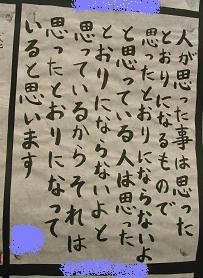 人が思った事は思った
とおりになるもので
思ったとおりにならないよ
と思っている人は思った
とおりにならないよと
思っているからそれは
思ったとおりになって
いると思います